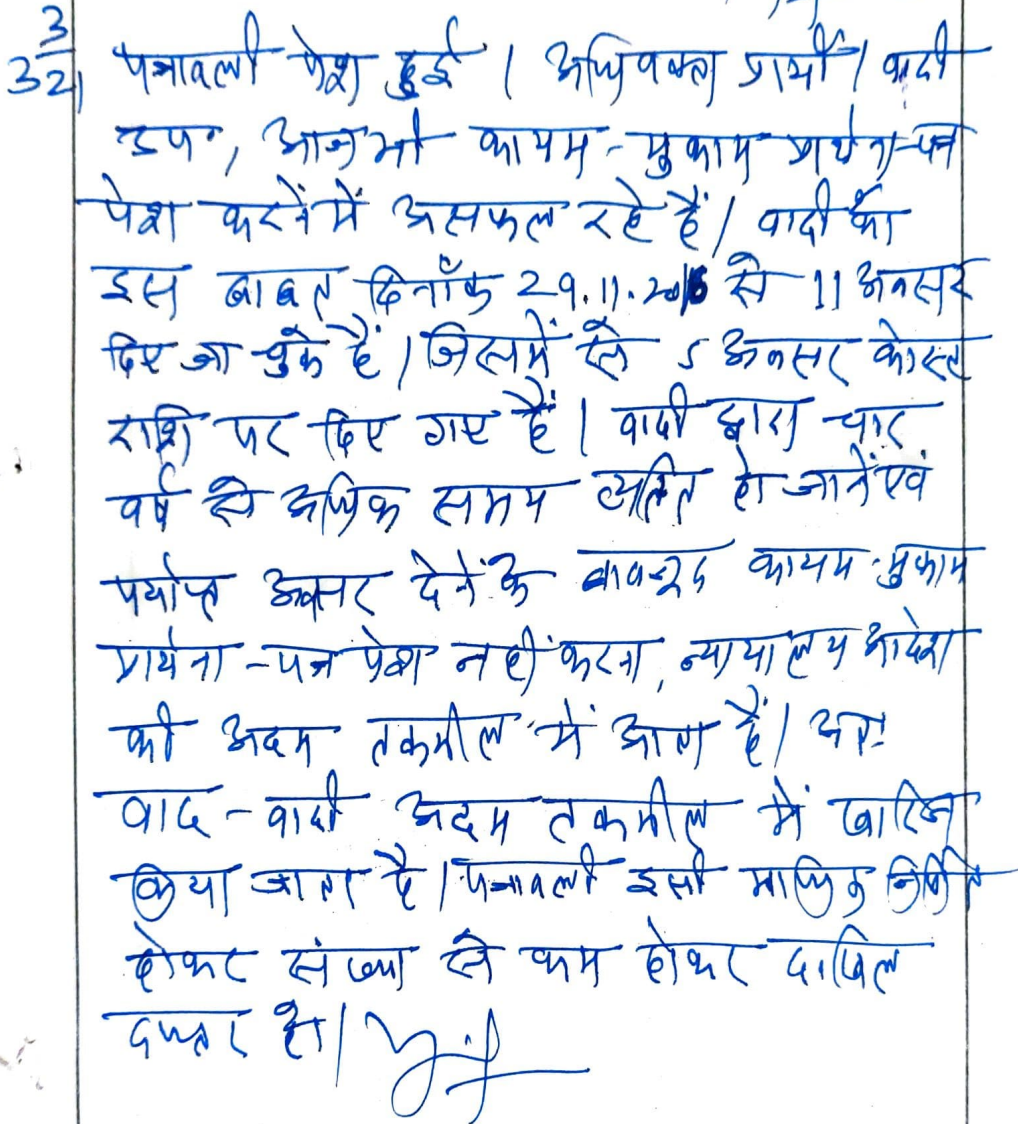 3/3/21 पत्रावली पेश हुई। अधिवक्ता प्रार्थी/वादी
उप॰, आज भी कायम-मुकाम प्रार्थना-पत्र
पेश करनें में असफल रहे हैं। वादी को
इस बाबत दिनाँक 29.11.2016 से 11 अवसर
दिए जा चुके हैं। जिसमें से 5 अवसर कोस्ट
राशि पर दिए गए हैं। वादी द्वारा चार
वर्ष से अधिक समय व्यतित हो जानें एवं
पर्याप्त अवसर देनें के बावजूद कायम-मुकाम
प्रार्थना-पत्र पेश नहीं करना, न्यायालय आदेश
की अदम तकमील में आता हैं। अतः
वाद-वादी अदम तकमील में खारिज
किया जाता है। पत्रावली इसी माफिक निर्णित
होकर संख्या से कम होकर दाखिल
दफ्तर हो।